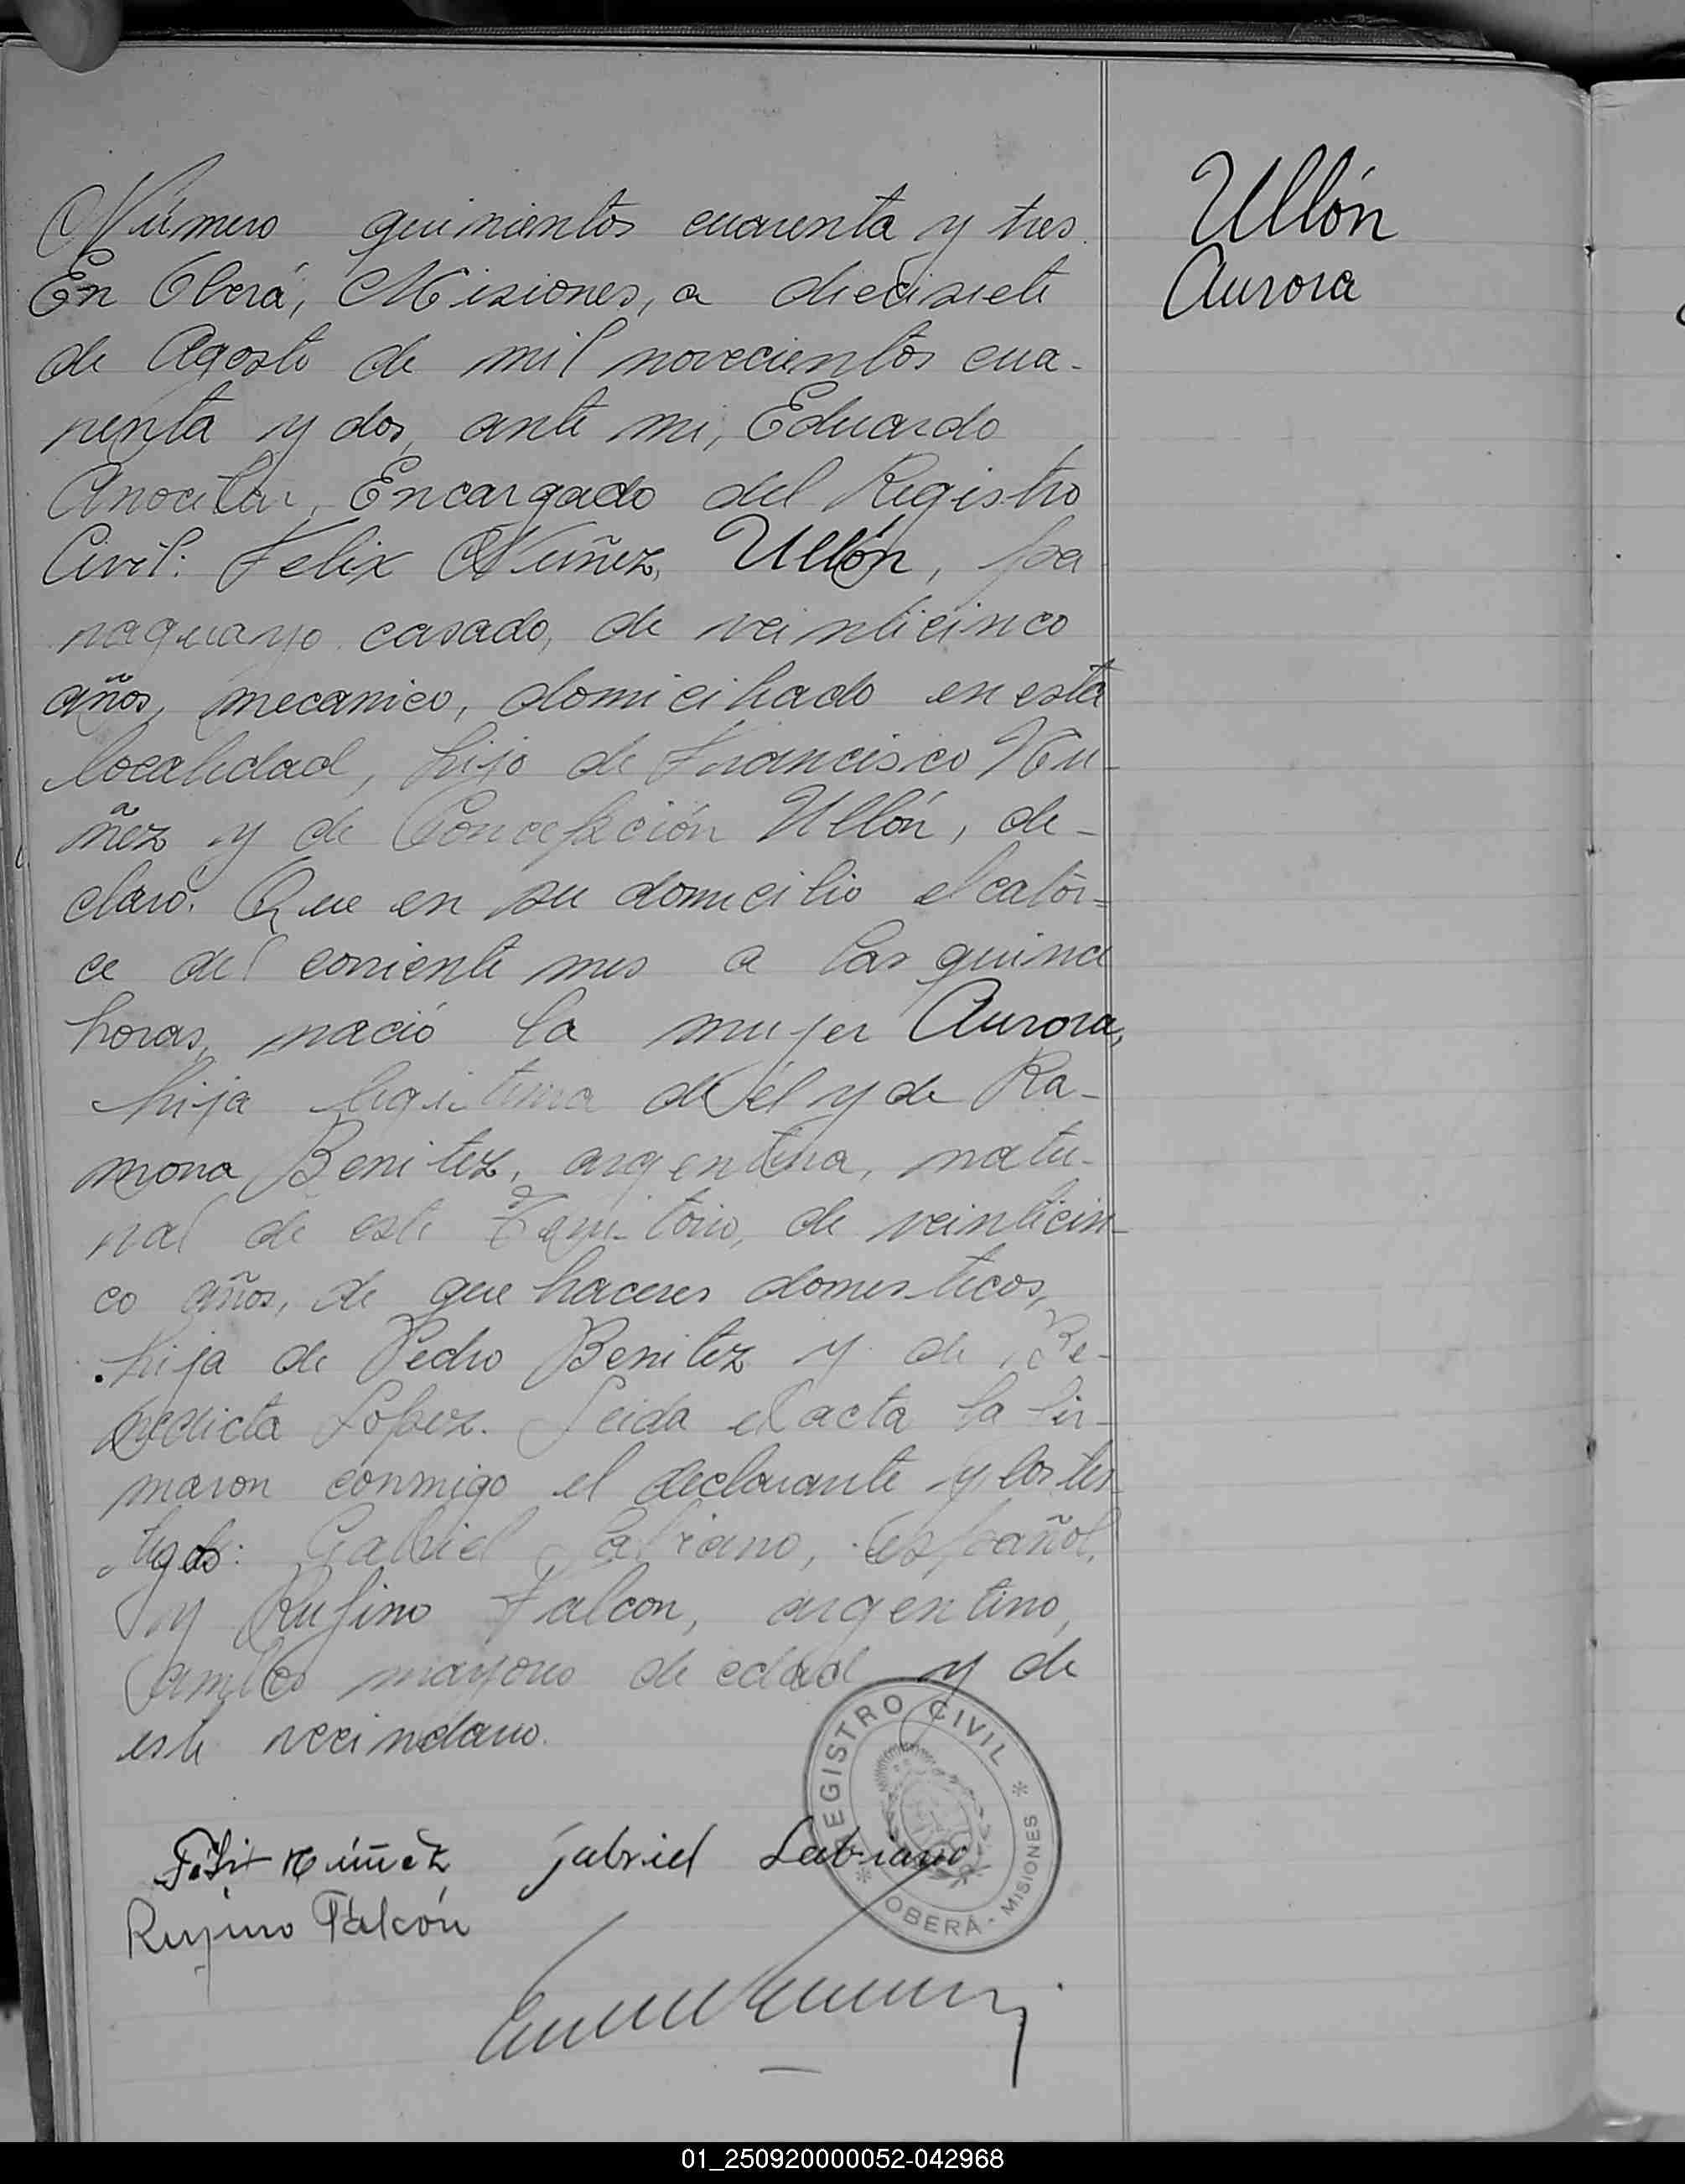 Ullón
Aurora
Número quinientos cuarenta y tres.
En Oberá, Misiones, a diecisiete
de Agosto de mil novecientos cua-
renta y dos, ante mi, Eduardo
Encargado del Registro
Civil: Felix Nuñez, Ullón, pa
raguayo casado, de veinticinco
años, mecanico, domiciliado en esta
localidad, hijo de Francisco Nu-
ñez y de Concepción Ullón, de-
claró: Que en su domicilio el cator=
ce del corriente mes a las quince
horas, nació la mujer Aurora,
hija legitima de él y de Ra-
mona Benitez, argentina, natu-
ral de este Territorio, de veinticin-
co años, de que haceres domesticos,
hija de Pedro Benitez y de Be-
nedicta Lopez. Leida el acta la fir-
maron conmigo el declarante y los tes
tigos: Gabriel Labiano, español,
y Rufino Falcon, argentino,
ambos mayores de edad y de
este vecindario.
REGISTRO CIVIL
OBERÁ - MISIONES
Felix Núñez Gabriel Labiano
Rufino Falcón
01_250920000052-042968